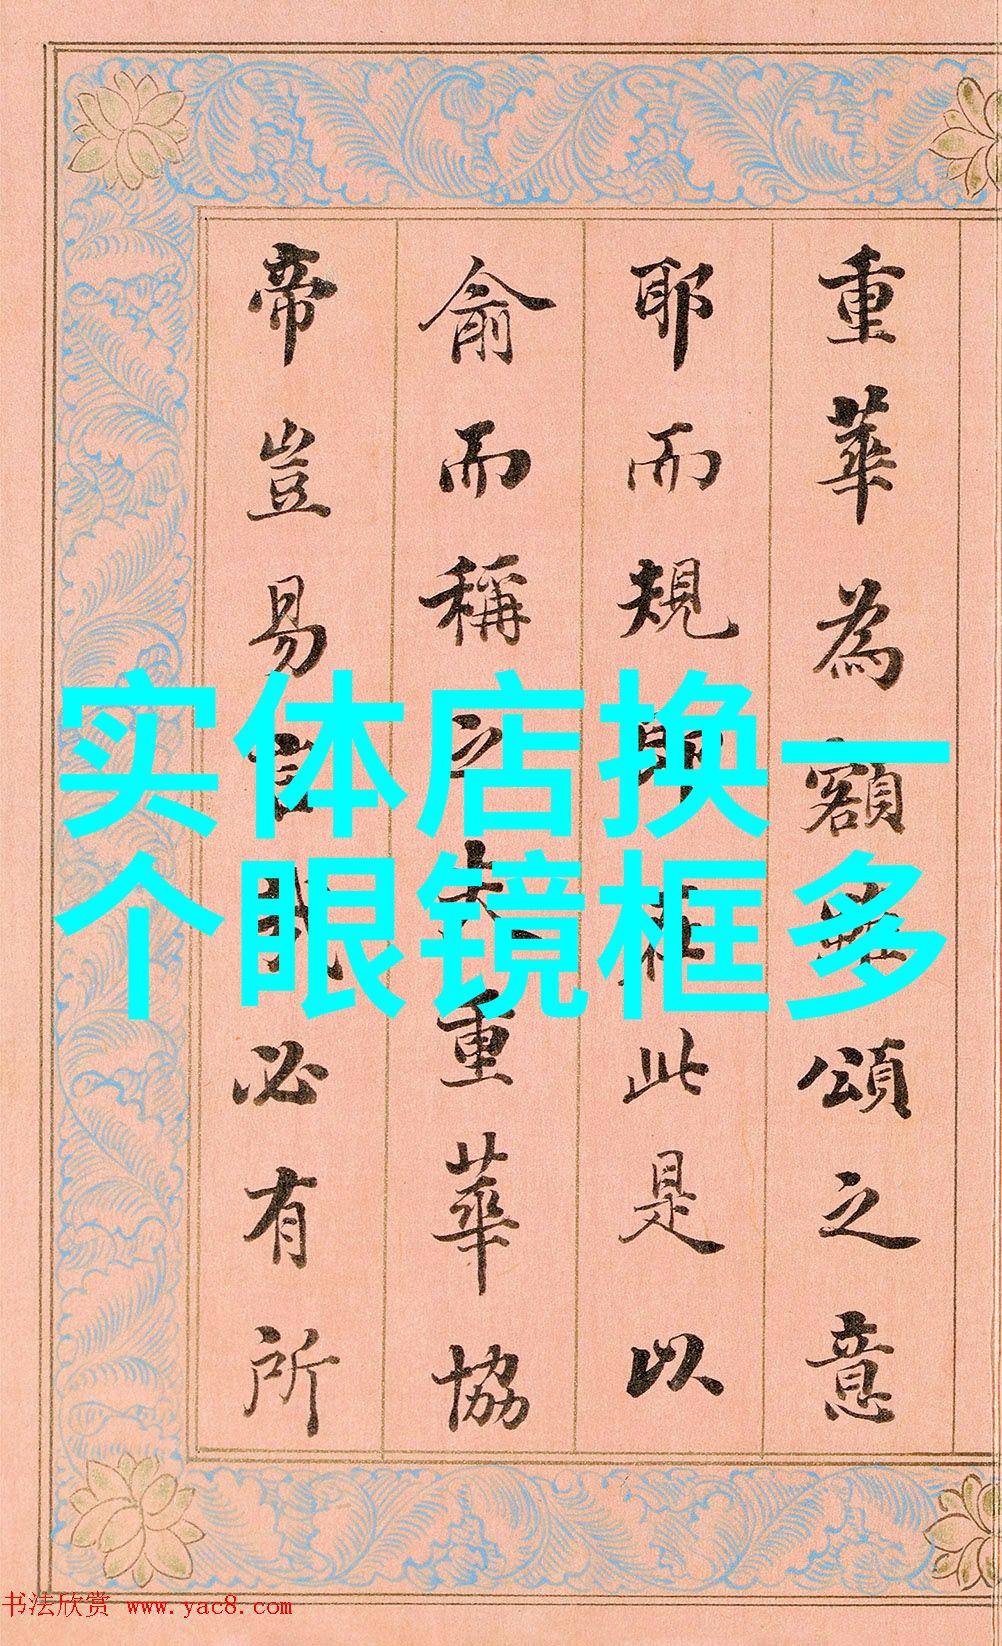 重華為額無頌之意
耶而規明在此是以
俞而稱之夫重華協
帝豈易言哉必有所
实体店换一
个眼镜框多
书法欣赏 www.yac8.com